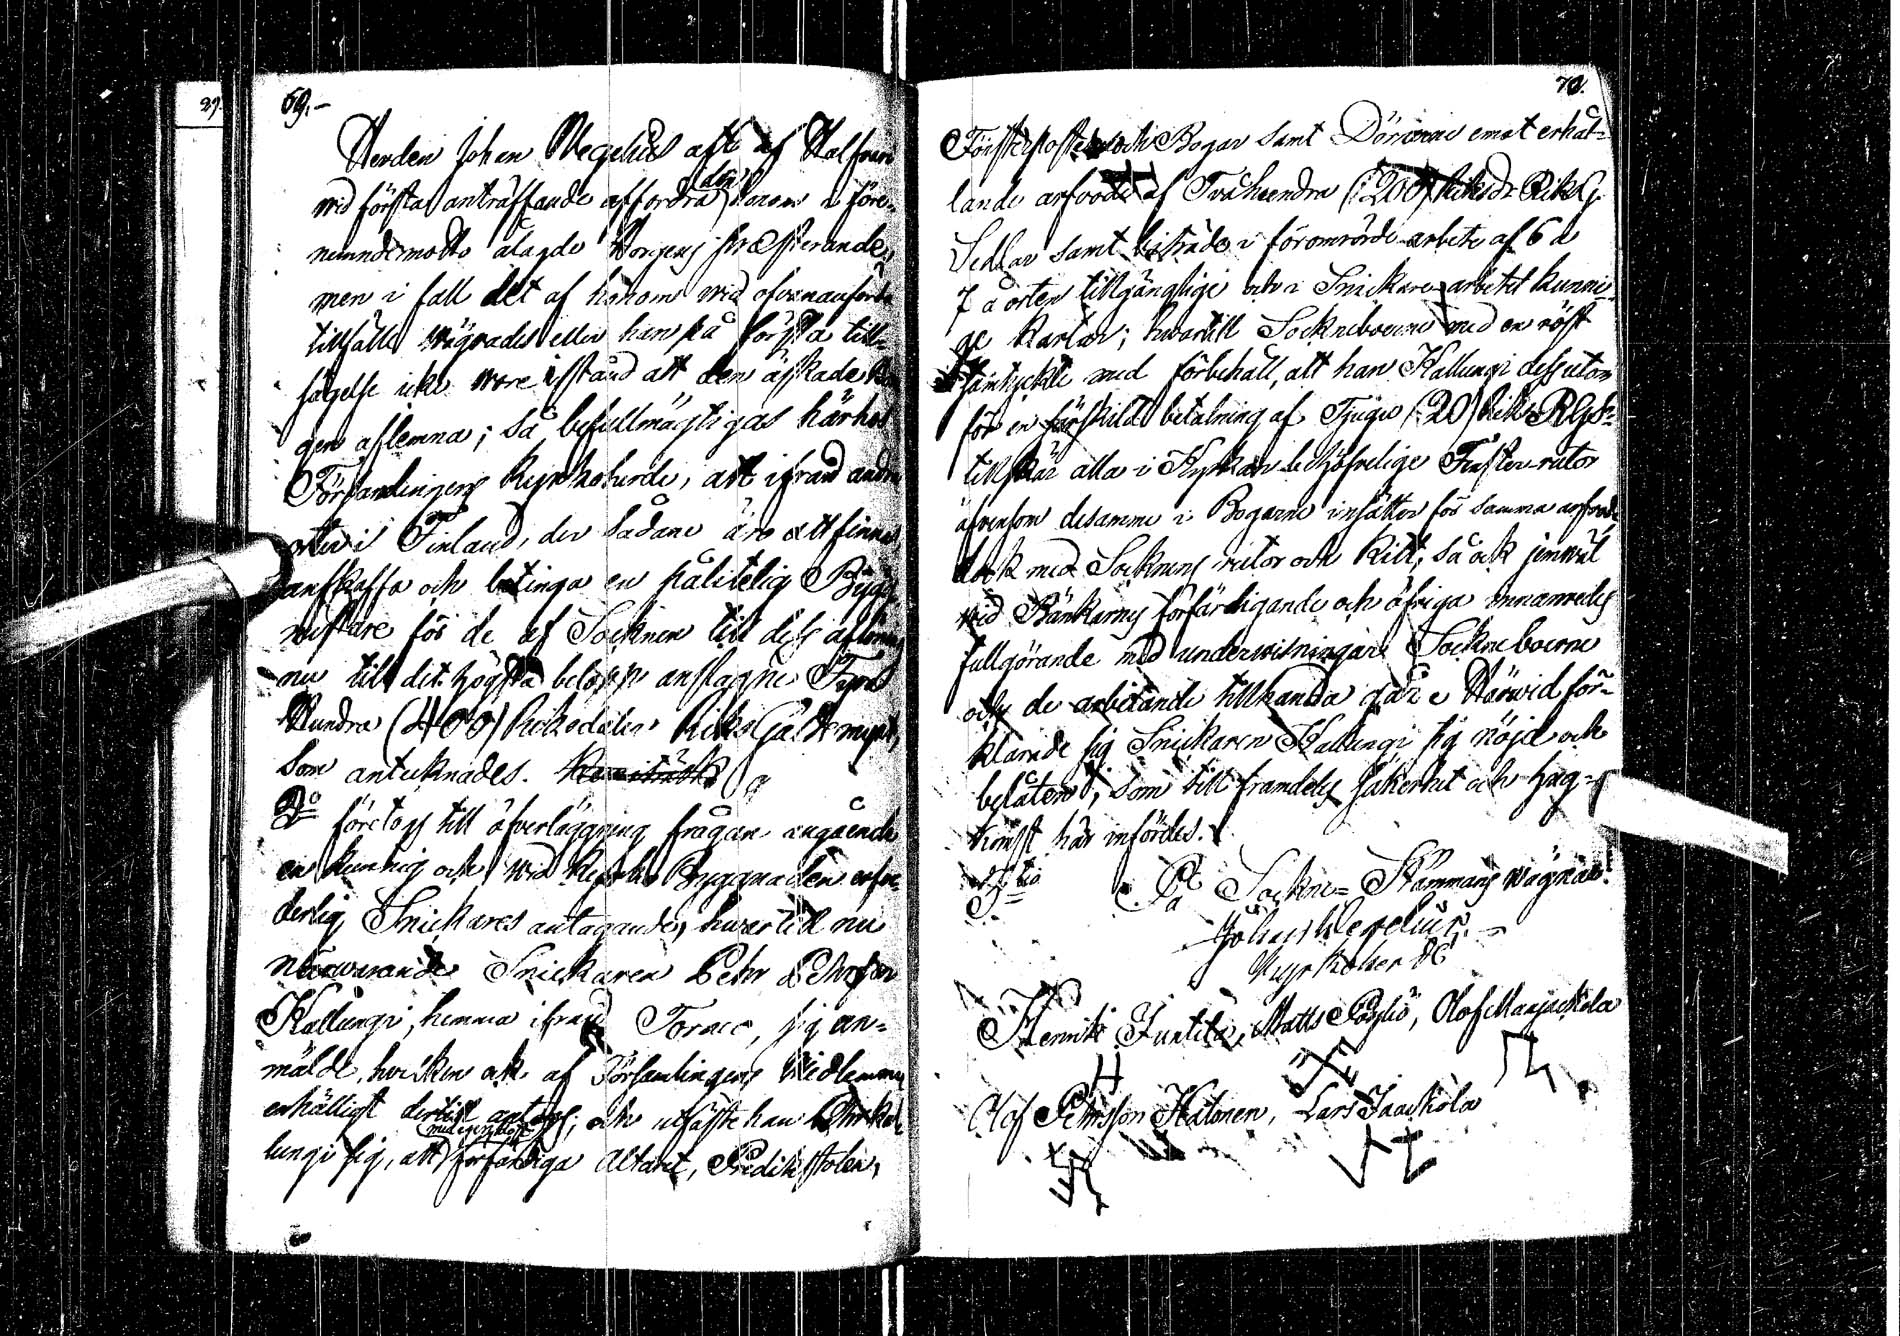 69.-
Herden Johan Wegelius att af Halfvari
wid första anträffande affordra den honom i före-
nemndemotto ålagde Borgens præsterande,
men i fall det af honom wid ofvananförde
tillfälle wägrades eller han på första till-
sägelse icke wore i stånd att den äskade Bor
gen aflemna; så befullmägtigas härhos
Församlingens Kyrkoherde, att ifrån andra
orter i Finland, der sådane äro att finna
anskaffa och betinga en pålitelig Bygg
mästare för de af Socknen till dess aflöning
nu till det högsta belopp anslagne Fyra
Hundra (400) Riksdaler Riks Gälds mynt,
som antecknades.
2o
företogs till öfverläggning frågan angående
en kunnig och wid Kyrko Byggnaden erfor-
derlig Snickares antagande, hwartill nu
närwarande Snickaren Pehr Pehrsson
Kallungi, hemma ifrån Torneo, sig an-
mälde, hvilken ock af Församlingens Medlemmar
enhälligt dertill antogs; och utfäste han Pehr Kal-
lungi sig, att förfärdiga Altaret, Predikstolen,
70.
Fönsterposter och Bogar samt Dörrarne emot erhål-
lande arfvode af Tvåhundra (200) Riksdr Riks G.
Sedlar samt biträde i föromrörde arbete af 6 a
7 å orten tillgänglige och i Snickare arbetet kunni-
ge karlar; hwartill Sockneboerne med en röst
samtyckte med förbehåll, att han Kallungi dessutom
för en särskild betalning af Tjugu (20) Riksd RGds
tillskär alla i Kyrkan behöfvelige Fenster-rutor
äfvensom desamma i Bogarne insätter för samma arfvode
dock med Socknens rutor och Kitt, så ock jemwäl
wid Bänkarnes förfärdigande och öfriga innanredes
fullgörande med underwisningar Sockneboerne
och de arbetande tillhanda går. Härwid för-
klarade sig Snickaren Kallungi sig nöjd och
belåten, som till framdeles säkerhet och hug-
komst här infördes.
3tio På Sockne-Stämmans wägnar:
Johan Wegelius.
Kyrkoherde
Henrik Juntila, Matts Pörhö, Olof Marjakola
Olof Pehrsson Hätönen, Lars Jaakola